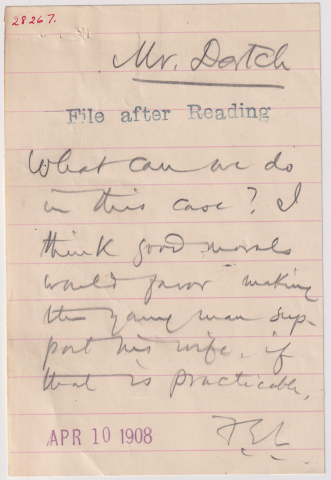 28267.
Mr. Dortch
File after Reading
What can we do
in this case? I
think good morals
would favor making
the young man sup-
port his wife, if
that is practicable.
APR 10 1908